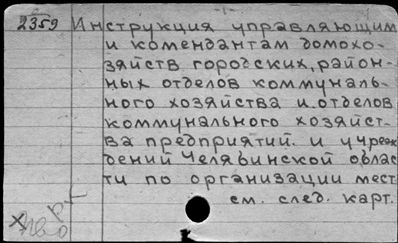 2359 Инструкция управляющим
и комендантам домохо-
зяйств городских, район-
ных отделов коммуналь-
ного хозяйства и отделов
коммунального хозяйст-
ва предприятий и учреж
дений Челябинской облас
ти по организации мест
см. след. карт.